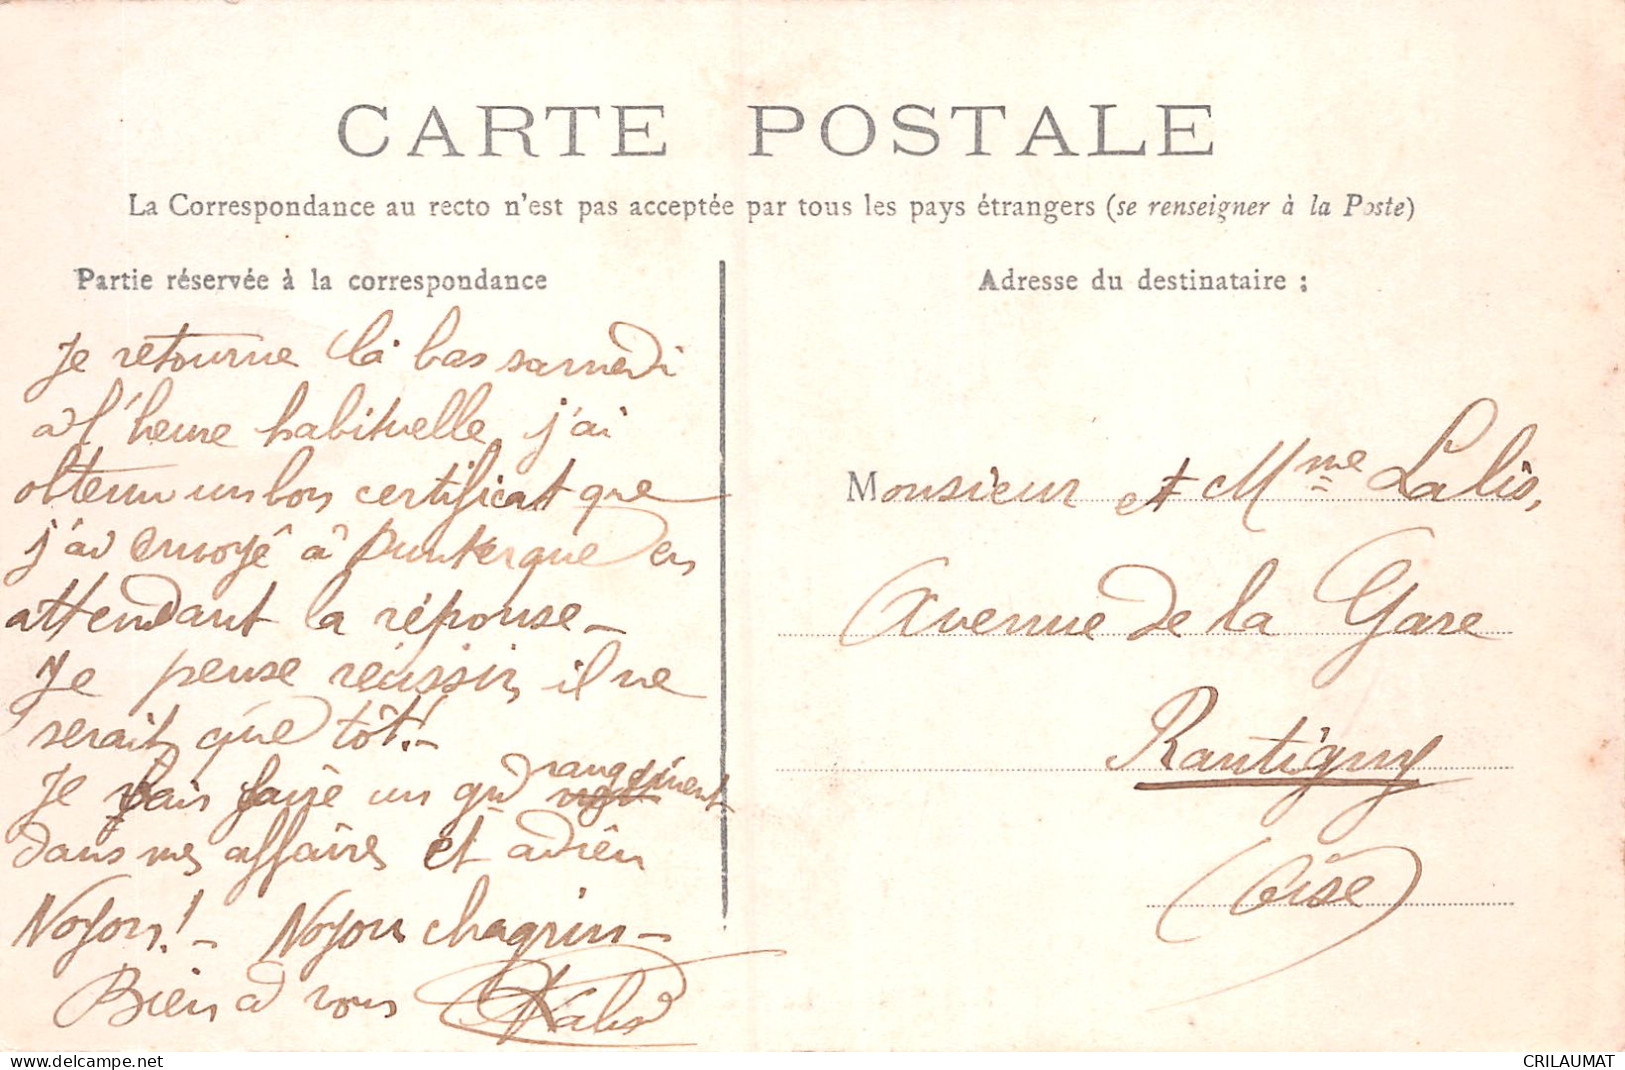 CARTE POSTALE
La Correspondance au recto n'est pas acceptée par tous les pays étrangers (se renseigner à la Poste)
Partie réservée à la correspondance
Je retourne là bas samedi
a l'heure habituelle, j'ai
obtenu un bon certificat que
j'ai envoyé à Dunkerque en
attendant la réponse –
Je pense réussir, il ne
serait que tôt! –
Je vais faire un gd rangement
dans mes affaires et adieu
Noyon! – Noyon chagrin –
Bien à vous
Adresse du destinataire :
Monsieur et Mme Lalis,
Avenue de la Gare
Rantigny
(Oise)
www.delcampe.net
CRILAUMAT